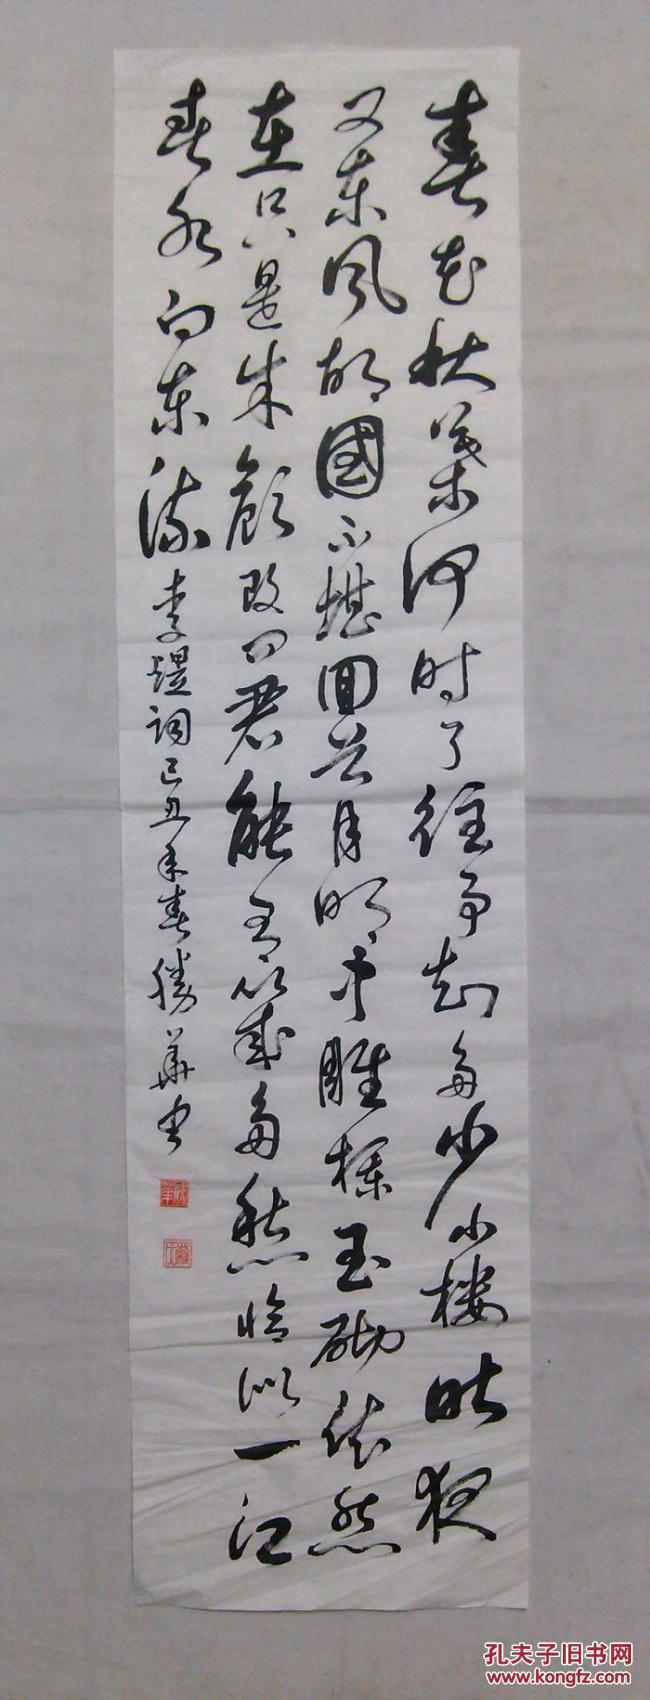 春花秋葉何时了往事知多少小楼昨夜
又东风故國不堪回首月明中雕栏玉砌依然
在只是朱颜改问君能有幾多愁恰似一江
春水向东流
李煜词己丑年春勝華书
孔夫子旧书网
www.kongfz.com